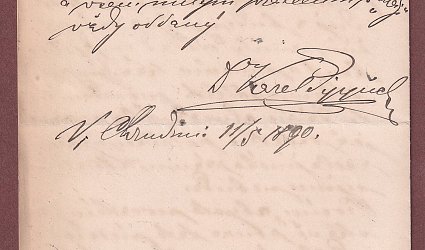 vždy oddaný
Dr Karel Pippich
V Chrudimi 11/5 1890.